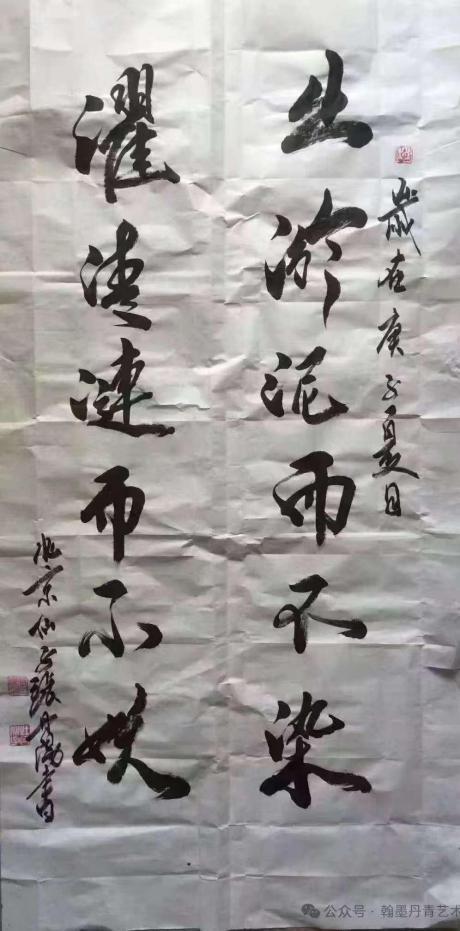 岁在庚子夏日
出淤泥而不染
濯清涟而不妖
北京仙
书
公众号·翰墨丹青艺术